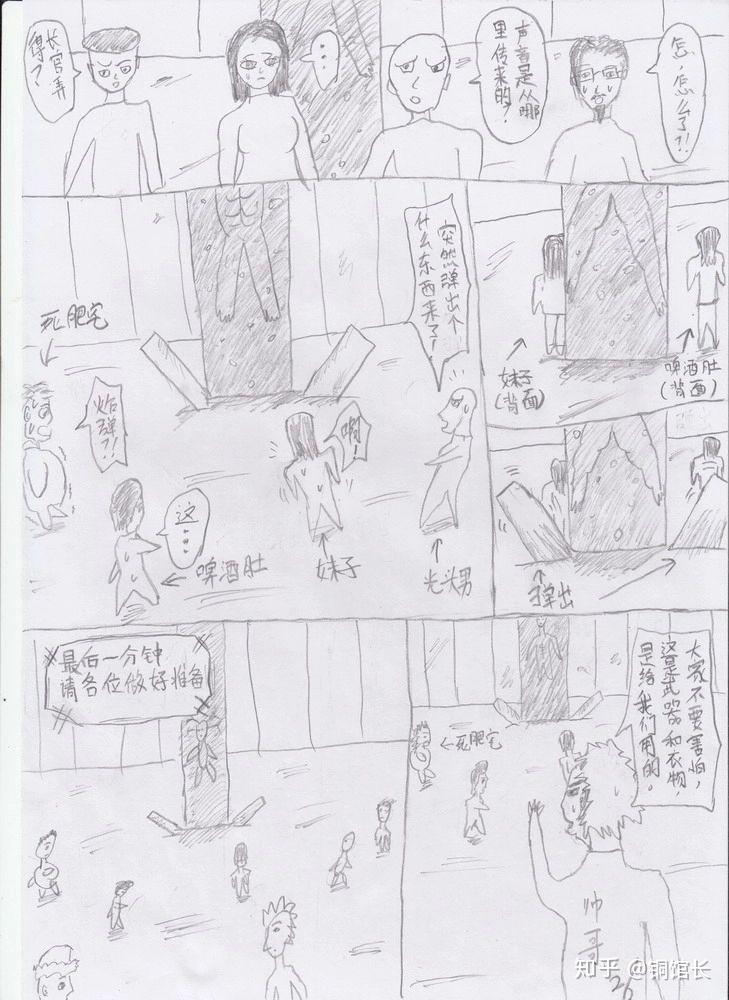 长官弄
得？
...
声音是从哪
里传来的？
怎，怎么了?!
死肥宅
炸弹?!
这...
啤酒肚
啊！
妹子
突然弹出个
什么东西来了！
光头男
妹子
(背面)
啤酒肚
(背面)
弹出
最后一分钟
请各位做好准备
死肥宅
大家不要害怕，
这是武器和衣物，
是给我们用的。
帅哥
26
知乎 @铜馆长